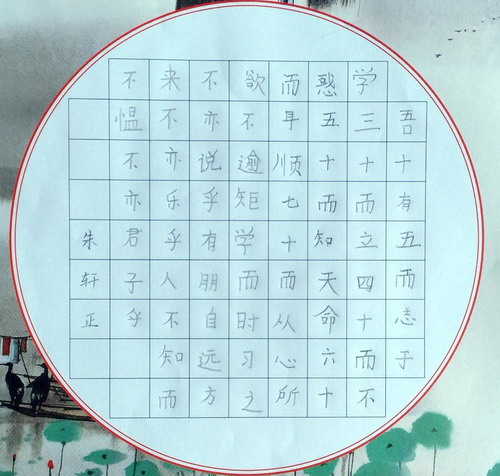 吾十有五而志于
学三十而立四十而不
惑五十而知天命六十
而耳顺七十而从心所
欲不逾矩学而时习之
不亦说乎有朋自远方
来不亦乐乎人不知而
不愠不亦君子乎
朱轩正